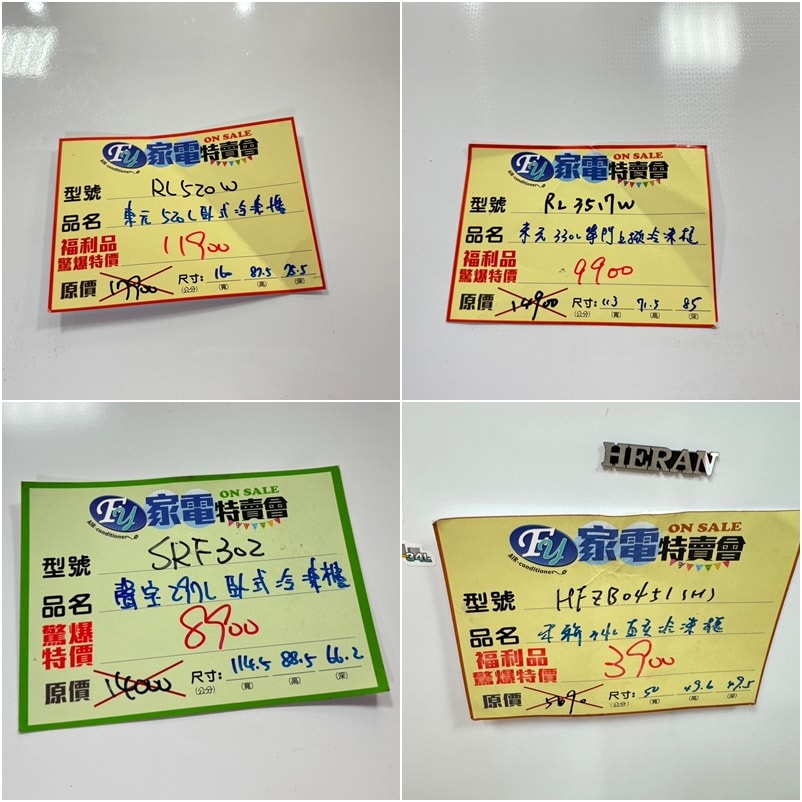 FY 家電特賣會 ON SALE
AIR-conditioner
型號 RL520W
品名 東元 520L臥式冷凍櫃
福利品
驚爆特價 11900
原價 17900 尺寸: 16 87.5 75.5
(公分) (寬) (高) (深)
FY 家電特賣會 ON SALE
AIR-conditioner
型號 RL3517W
品名 東元 330L單門上掀冷凍櫃
福利品
驚爆特價 9900
原價 14900 尺寸: 113 71.5 85
(公分) (寬) (高) (深)
FY 家電特賣會 ON SALE
AIR-conditioner
型號 SRF302
品名 聲宝 297L 臥式冷凍櫃
驚爆
特價 8900
原價 14000 尺寸: 114.5 88.5 66.2
(公分) (寬) (高) (深)
HERAN
34L
FY 家電特賣會 ON SALE
AIR-conditioner
型號 HFZB0451(H)
品名 禾聯 34L 直立冷凍櫃
福利品
驚爆特價 3900
原價 5690 尺寸: 50 49.6 49.5
(公分) (寬) (高) (深)